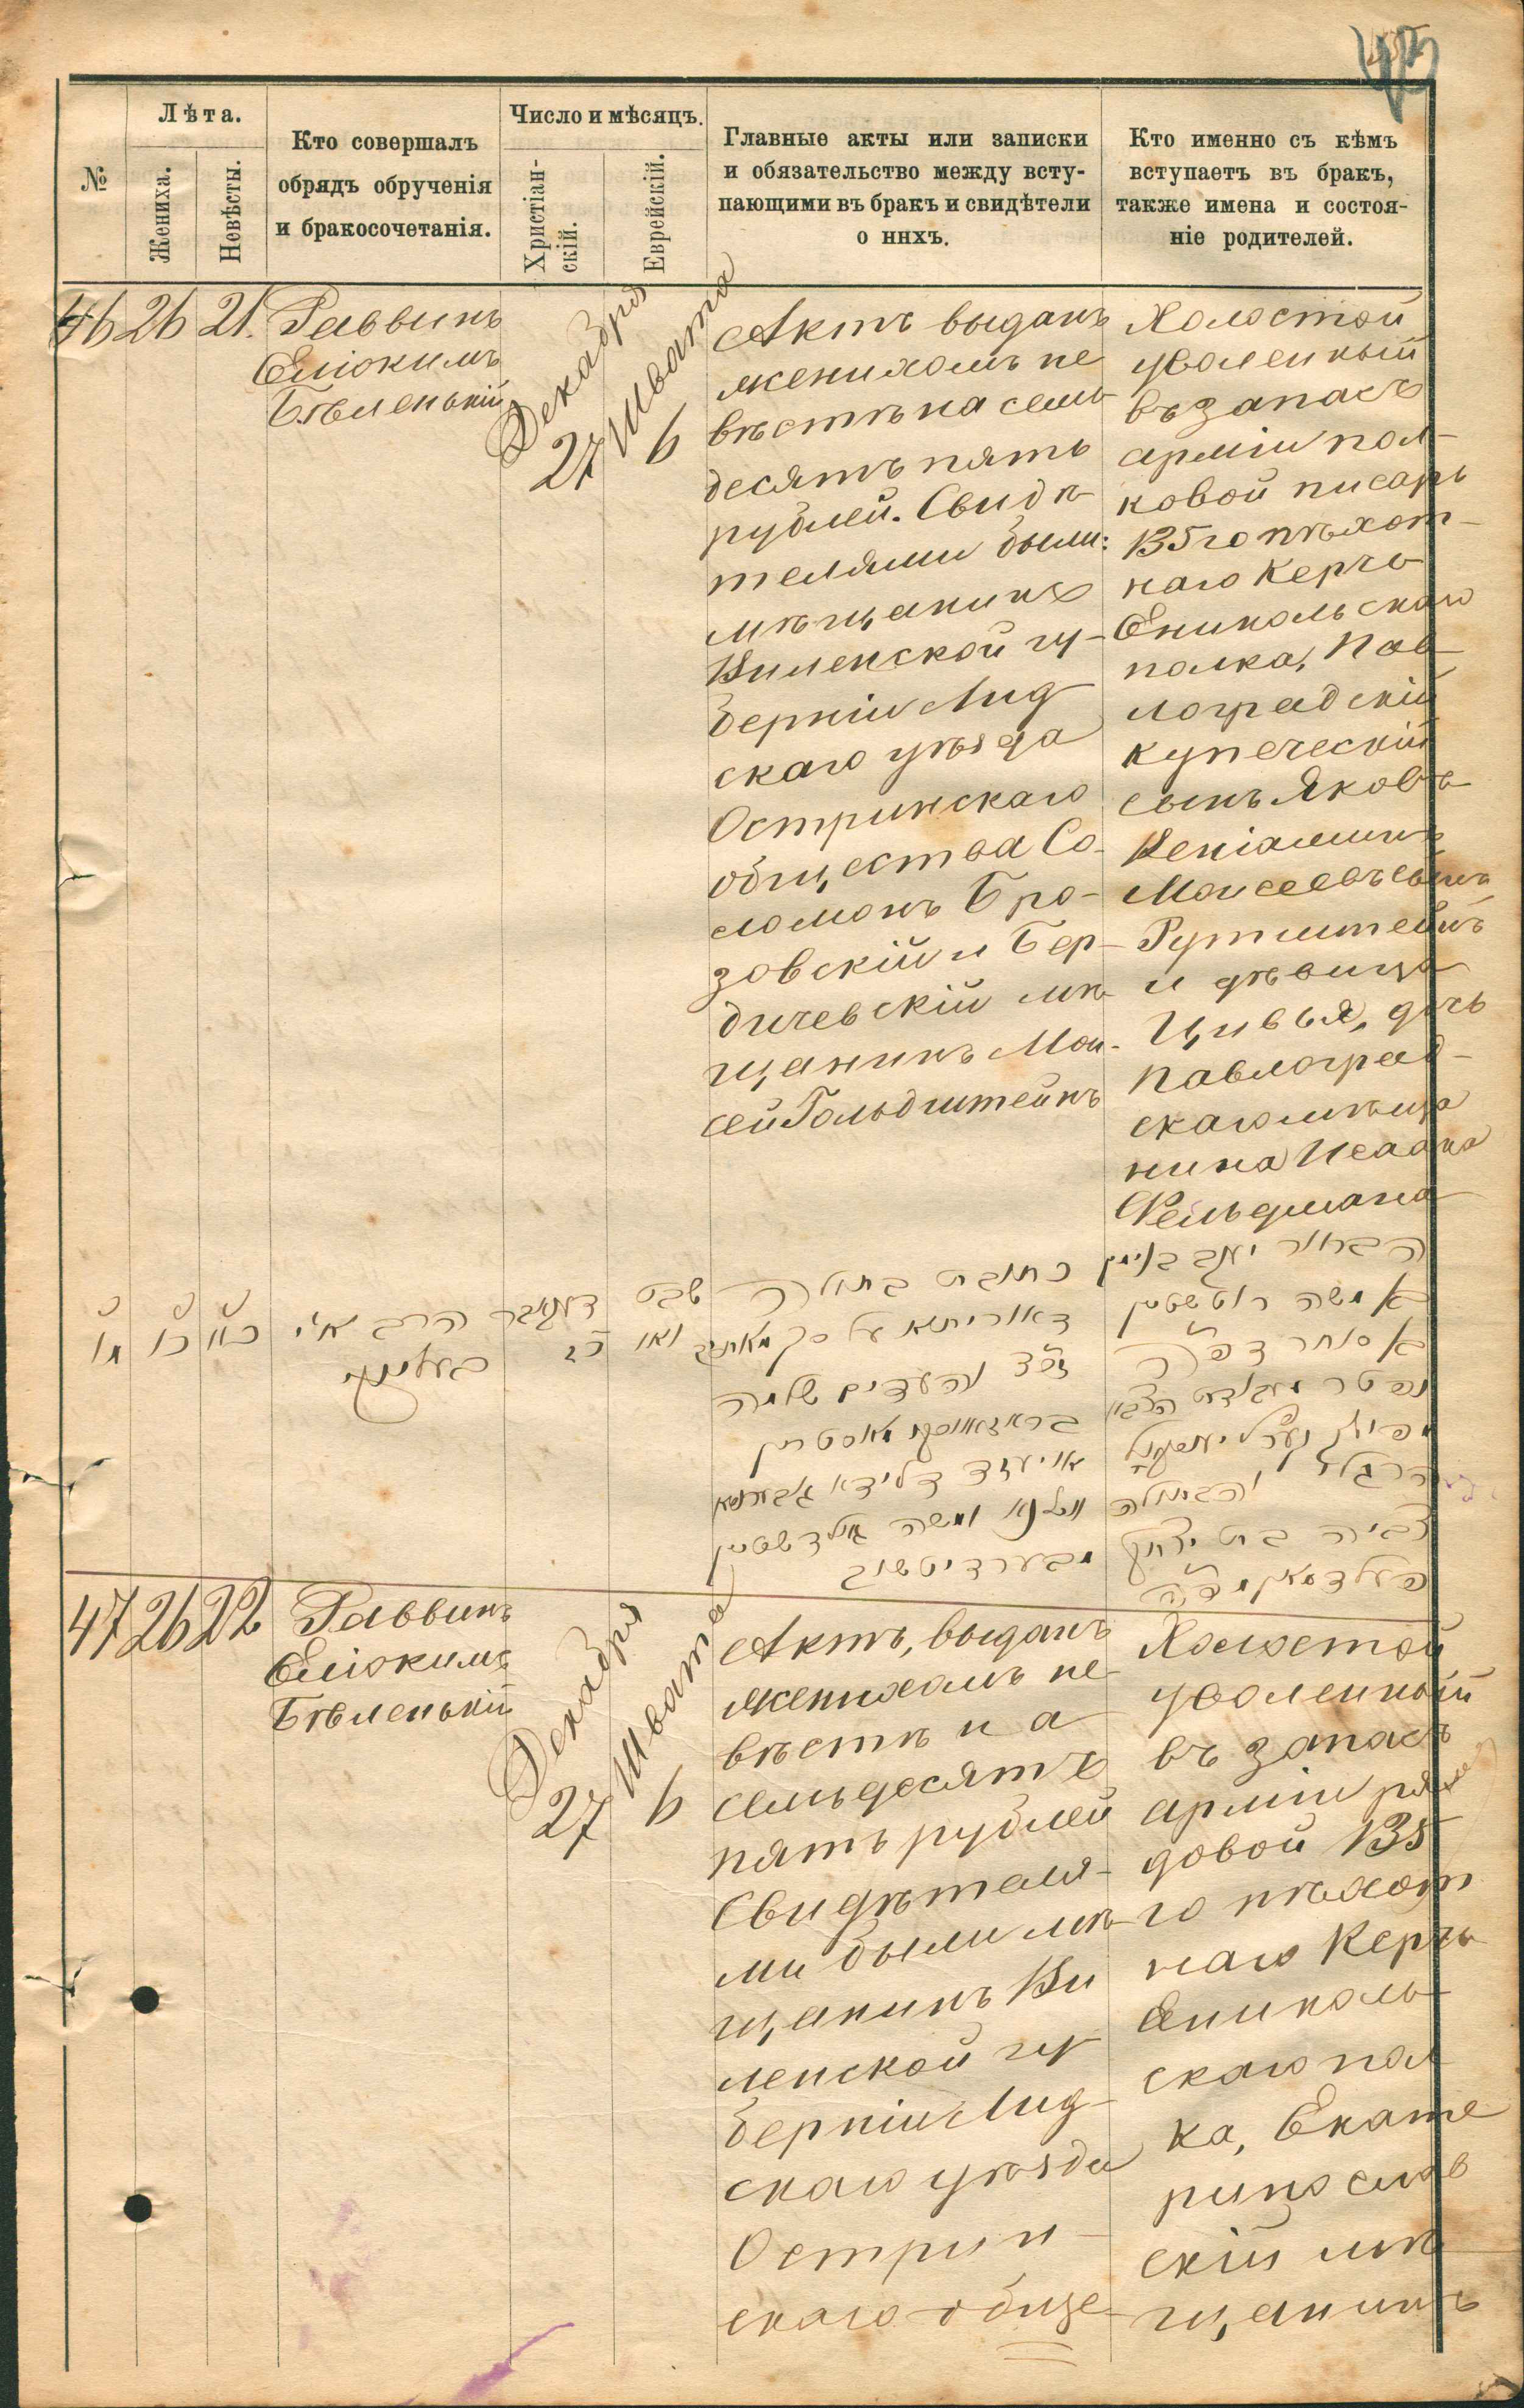 №
Лѣта.
Жениха.
Невѣсты.
Кто совершалъ
обрядъ обрученія
и бракосочетанія.
Число и мѣсяцъ.
Христіан-
скій.
Еврейскій.
Главные акты или записки
и обязательство между всту-
пающими въ бракъ и свидѣтели
о нихъ.
Кто именно съ кѣмъ
вступаетъ въ бракъ,
также имена и состоя-
ніе родителей.
46
26
21.
Раввинъ
Еліокимъ
Бѣленькій
Декабря
27
Швата
6
Актъ выданъ
женихомъ не
вѣстѣ на семь
десятъ пять
рублей. Свидѣ
телями были:
мѣщанинъ
Виленской гу-
берніи Лид
скаго уѣзда
Остринскаго
общества Со-
ломонъ Бро-
зовскій и Бер-
дичевскій мѣ-
щанинъ Мои-
сей Гольдштейнъ
Холостой
уволенный
въ запасъ
арміи пол-
ковой писарь
135 го пѣхот-
наго Керчь
Еникольскаго
полка, Пав-
лоградскій
купеческій
сынъ Яковъ
Веніаминъ
Моисеевъ сынъ
Рутштейнъ
и дѣвица
Цивья, дочь
Павлоград-
скаго мѣща
нина Исаака
Фельдмана
מו
כו
כא
הרב
דעקאבר
כז
שבט
ואו
כתובת בתולה
דאורייתא על סך מאתים
והעדים שלמה
בראזאווסקי מאסטרין
דלידא
ווילנא ומשה גאלדשטיין
מבערדיטשוב
הבחור יעקב בנימין
משה רוטשטיין
סוחר
והבתולה
צביה בת יצחק
פעלדמאן
47
26
22
Раввинъ
Еліокимъ
Бѣленькій
Декабря
27
Швата
6
Актъ, выданъ
женихомъ не-
вѣстѣ на
семьдесятъ
пять рублей
Свидѣтеля-
ми были мѣ-
щанинъ Ви
ленской гу-
берніи Лид-
скаго уѣзда
Острин-
скаго обще-
Холостой
уволенный
въ запасъ
арміи ря
довой 135
го пѣхот
наго Керчь
Ениколь-
скаго пол
ка, Екате
ринослав
скій мѣ
щанинъ